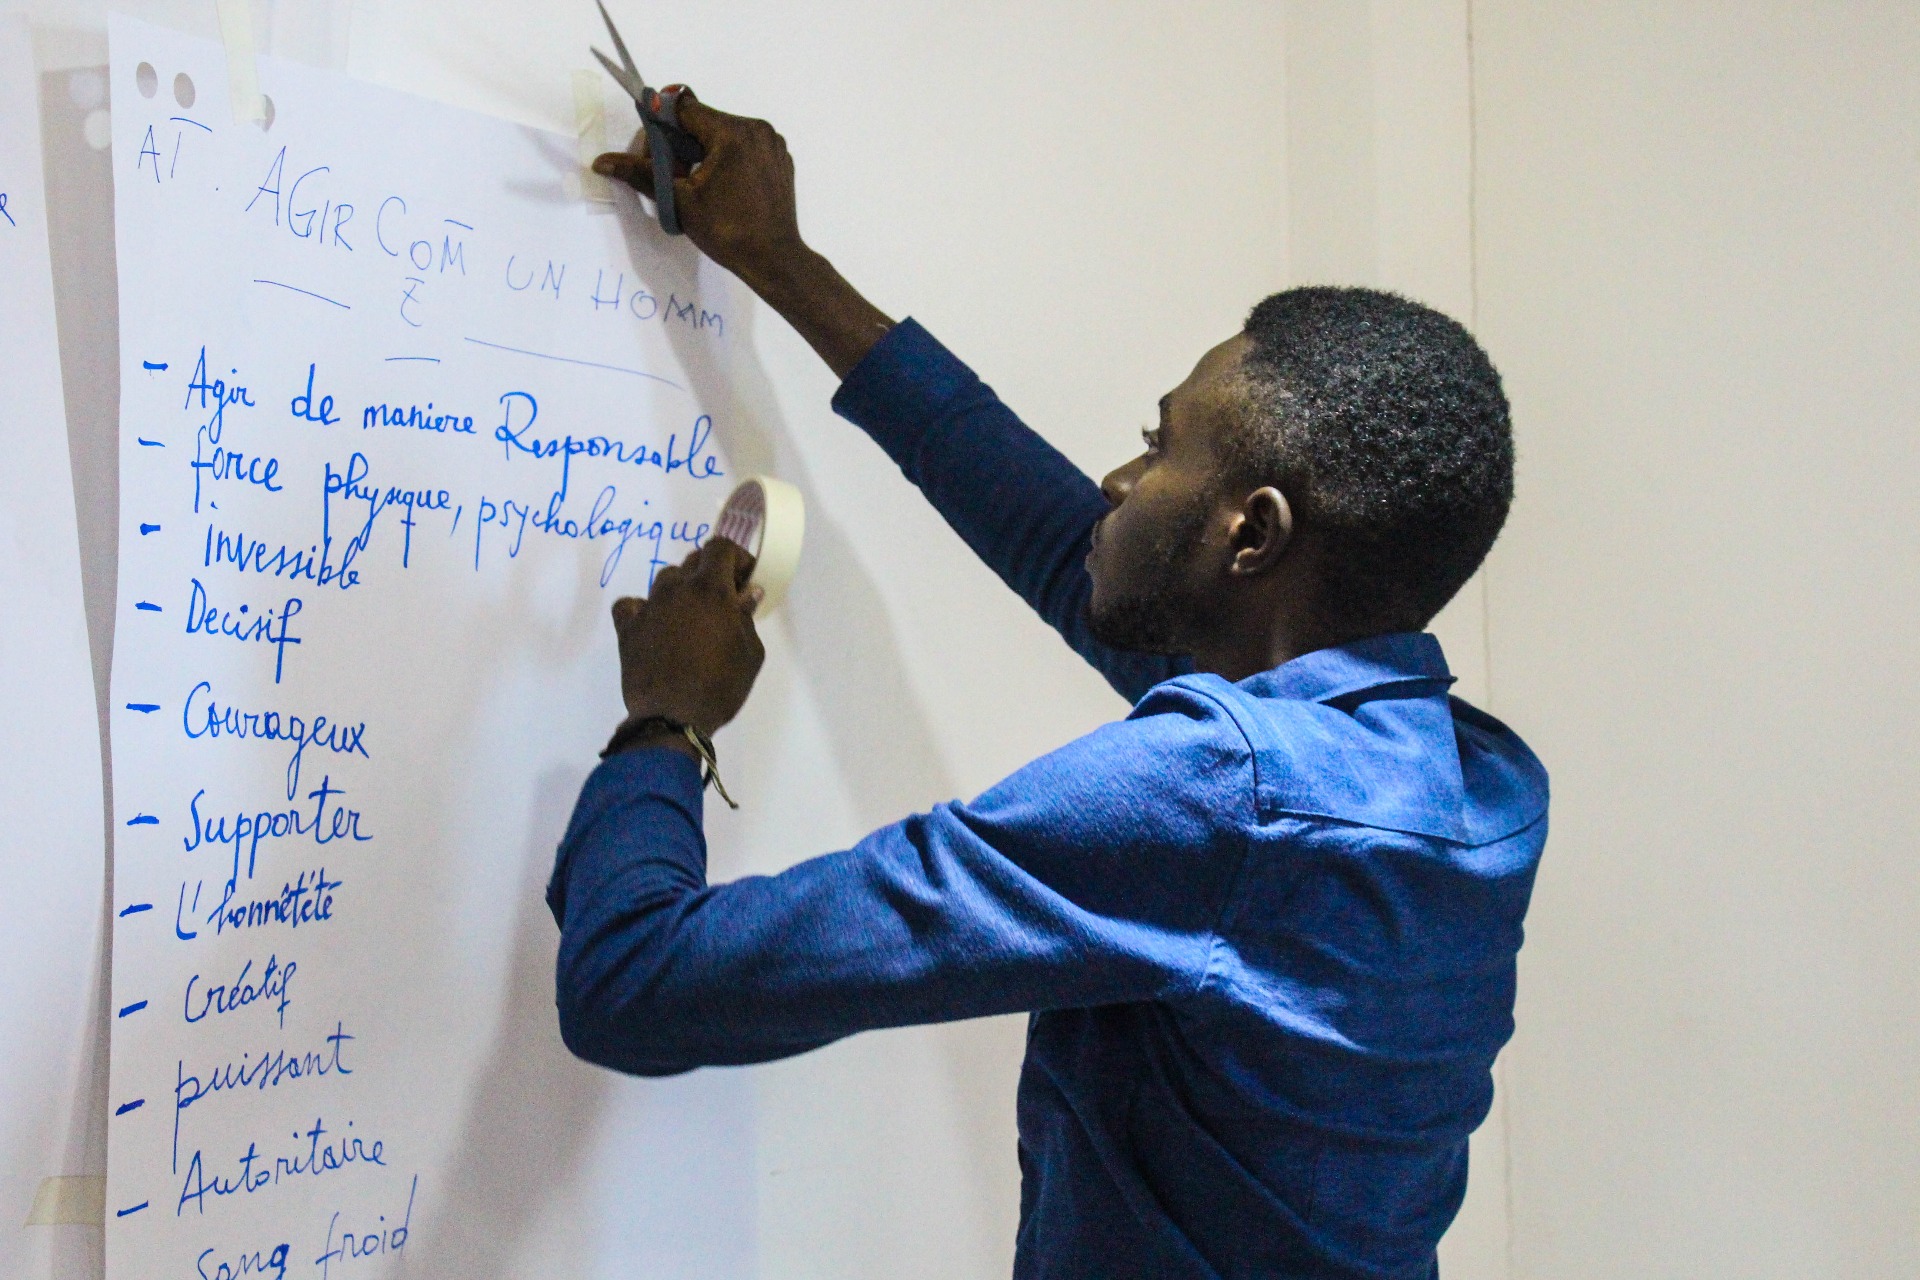 AT. AGIR COM UN HOMM
E
- Agir de maniere Responsable
- force physique, psychologique
- invessible
- Decisif
- Courageux
- Supporter
- L'honnêtété
- Créatif
- puissant
- Autoritaire
Sang froid